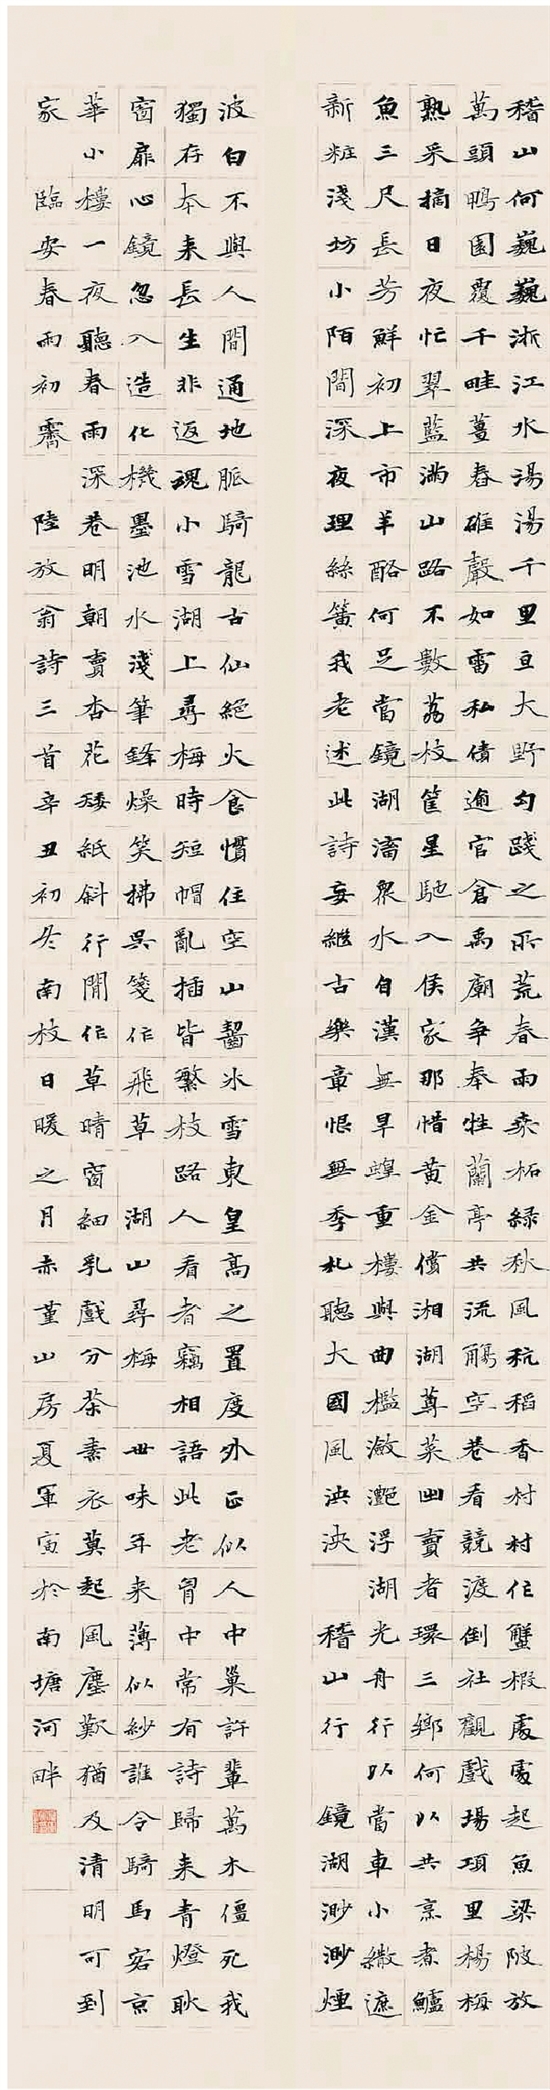 稽山何巍巍淛江水湯湯千里亘大野勾踐之所荒春雨桑柘綠秋風秔稻香村村作蟹椴處處起魚梁陂放
萬頭鴨園覆千畦薑舂碓聲如雷私債逾官倉禹廟爭奉牲蘭亭共流觴空巷看競渡倒社觀戲場項里楊梅
熟采摘日夜忙翠藍滿山路不數荔枝筐星馳入侯家那惜黃金償湘湖蓴菜出賣者環三鄉何以共烹煮鱸
魚三尺長芳鮮初上市羊酪何足當鏡湖瀦眾水自漢無旱蝗重樓與曲檻瀲灩浮湖光舟行以當車小繖遮
新粧淺坊小陌間深夜理絲簧我老述此詩妄繼古樂章恨無季札聽大國風泱泱 稽山行 鏡湖渺渺煙
波白不與人間通地脈騎龍古仙絕火食慣住空山齧冰雪東皇高之置度外正似人中巢許輩萬木僵死我
獨存本來長生非返魂小雪湖上尋梅時短帽亂插皆繁枝路人看者竊相語此老胷中常有詩歸來青燈耿
窗扉心鏡忽入造化機墨池水淺筆鋒燥笑拂吳箋作飛草 湖山尋梅 世味年来薄似紗誰令騎馬客京
華小樓一夜聽春雨深巷明朝賣杏花矮紙斜行閒作草晴窗細乳戲分茶素衣莫起風塵歎猶及清明可到
家 臨安春雨初霽 陸放翁詩三首辛丑初冬南枝日暖之月赤堇山房夏軍寅於南塘河畔